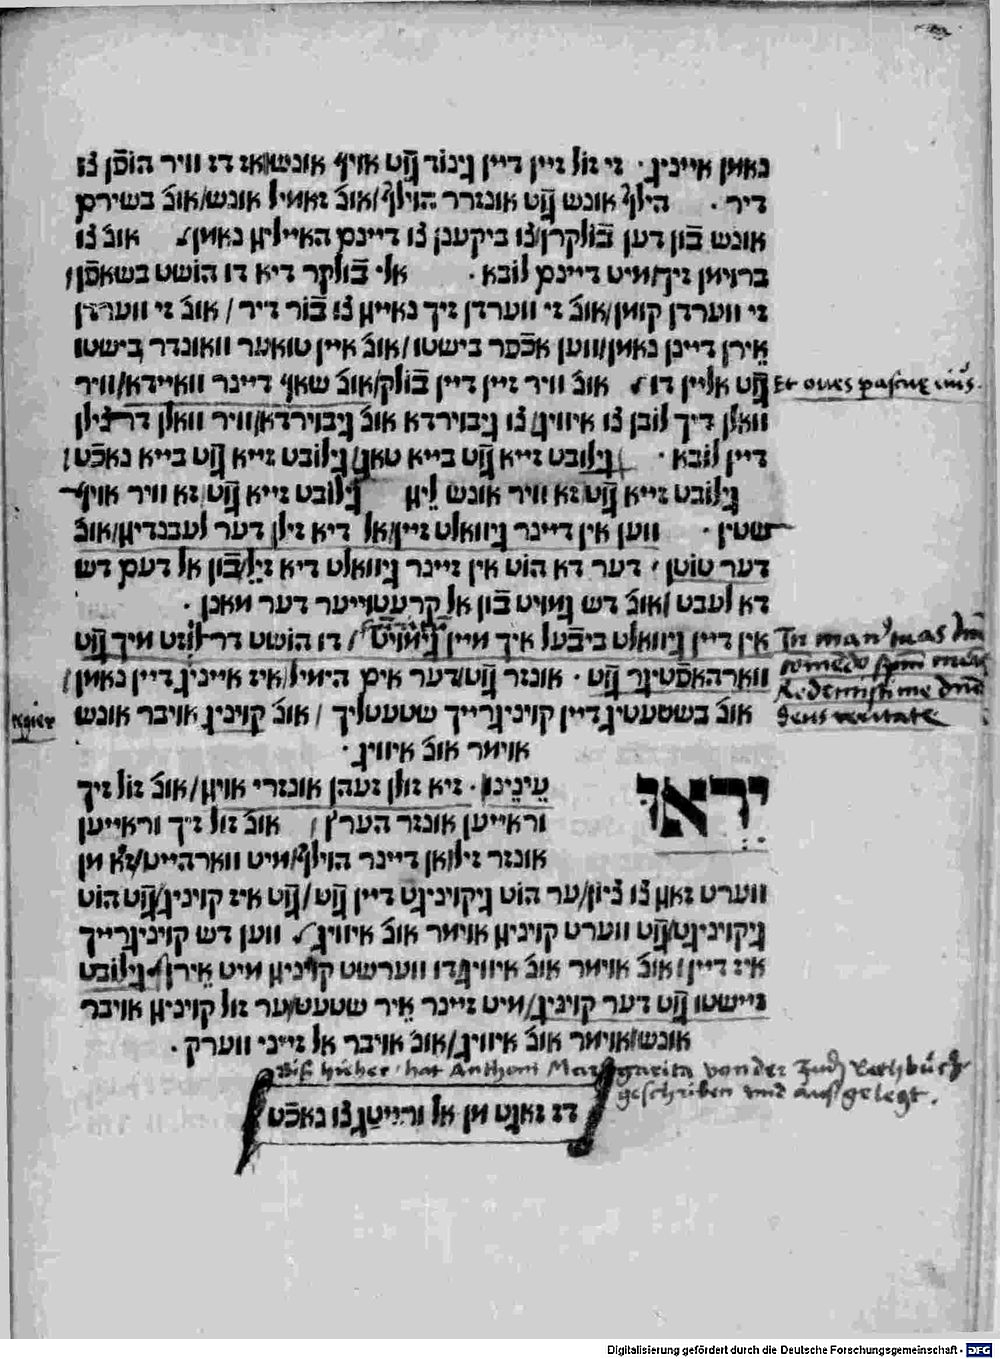 נאמן אייניג. זי זול זיין דיין גינור גוט אויף אונש אז דז וויר הופן צו
דיר . הילף אונש גוט אונזרר הוילף/אונ זאמיל אונש/אונ בשירם
אונש בון דען בולקרן/צו ביקענן צו דיינם האייליגן נאמן/ אונ צו
ברוימן זיך/מיט דיינם לובא . אלי בולקר דיא דו הושט בשאפן/
זי ווערדן קומן/אונ זי ווערדן זיך נאייגן צו בור דיר / אונ זי ווערדן
אירן דיינן נאמן/ווען אכפר בישטו/אונ איין טואער וואונדר בישטו
גוט אליין דו/ אונ וויר זיין דיין בולק/אונ שאף דיינר וואיידא/וויר Et oves pascue eius.
וואלן דיך לובן צו איוויג/צו גיבוירדא אונ גיבוירדא/וויר וואלן דרצילן
דיין לובא . גילובט זייא גוט בייא טאג/גילובט זייא גוט בייא נאכט/
גילובט זייא גוט זא וויר אונש ליגן גילובט זייא גוט זא וויר אויף
שטין . ווען אין דיינר גיוואלט זיין/אל דיא זילן דער לעבנדיגן/אונ
דער טוטן/ דער דא הוט אין זיינר גיוואלט דיא זיל/בון אל דעם דש
דא לעבט /אונ דש גמויט בון אל קרעטוייער דער מאנן .
אין דיין גיוואלט ביבעל איך מיין גימויט / דו הושט דרלוזט מיך גוט In man' tuas dne
ווארהאפטיגר גוט . אונזר גוט/דער אים הימיל/איז אייניג דיין נאמן/ comedo spm meu
אונ בשטעטיג דיין קויניגרייך שטעטליך / אונ קויניג אויבר אונש Redemisti me dne
אוימר אונ איוויג. deus veritate
יראו עינינו . זיא זולן זעהן אונזרי אויגן/אונ זול זיך
וראייען אונזר הערץ / אונ זול זיך וראייען
אונזר זיל/אן דיינר הוילף/מיט ווארהייט/זא מן
ווערט זאגן צו ציון/ער הוט גיקויניגט דיין גוט/גוט איז קויניג/גוט הוט
גיקויניגט/גוט ווערט קויניגן אוימר אונ איוויג/ ווען דש קויניגרייך
איז דיין/אונ אוימר אונ איוויג/דו ווערשט קויניגן מיט אירן/גילובט
זיישטו גוט דער קויניג/מיט זיינר איר שטעט/ער זול קויניגן אויבר
אונש/אוימר אונ איוויג/אונ אויבר אל זייני ווערק .
Biß hieher hat Anthoni Margarita von der Juden Betbüch
geschriben vnd außgelegt.
דז זאגט מן אל ורייטג צו נאכט
Digitalisierung gefördert durch die Deutsche Forschungsgemeinschaft - DFG